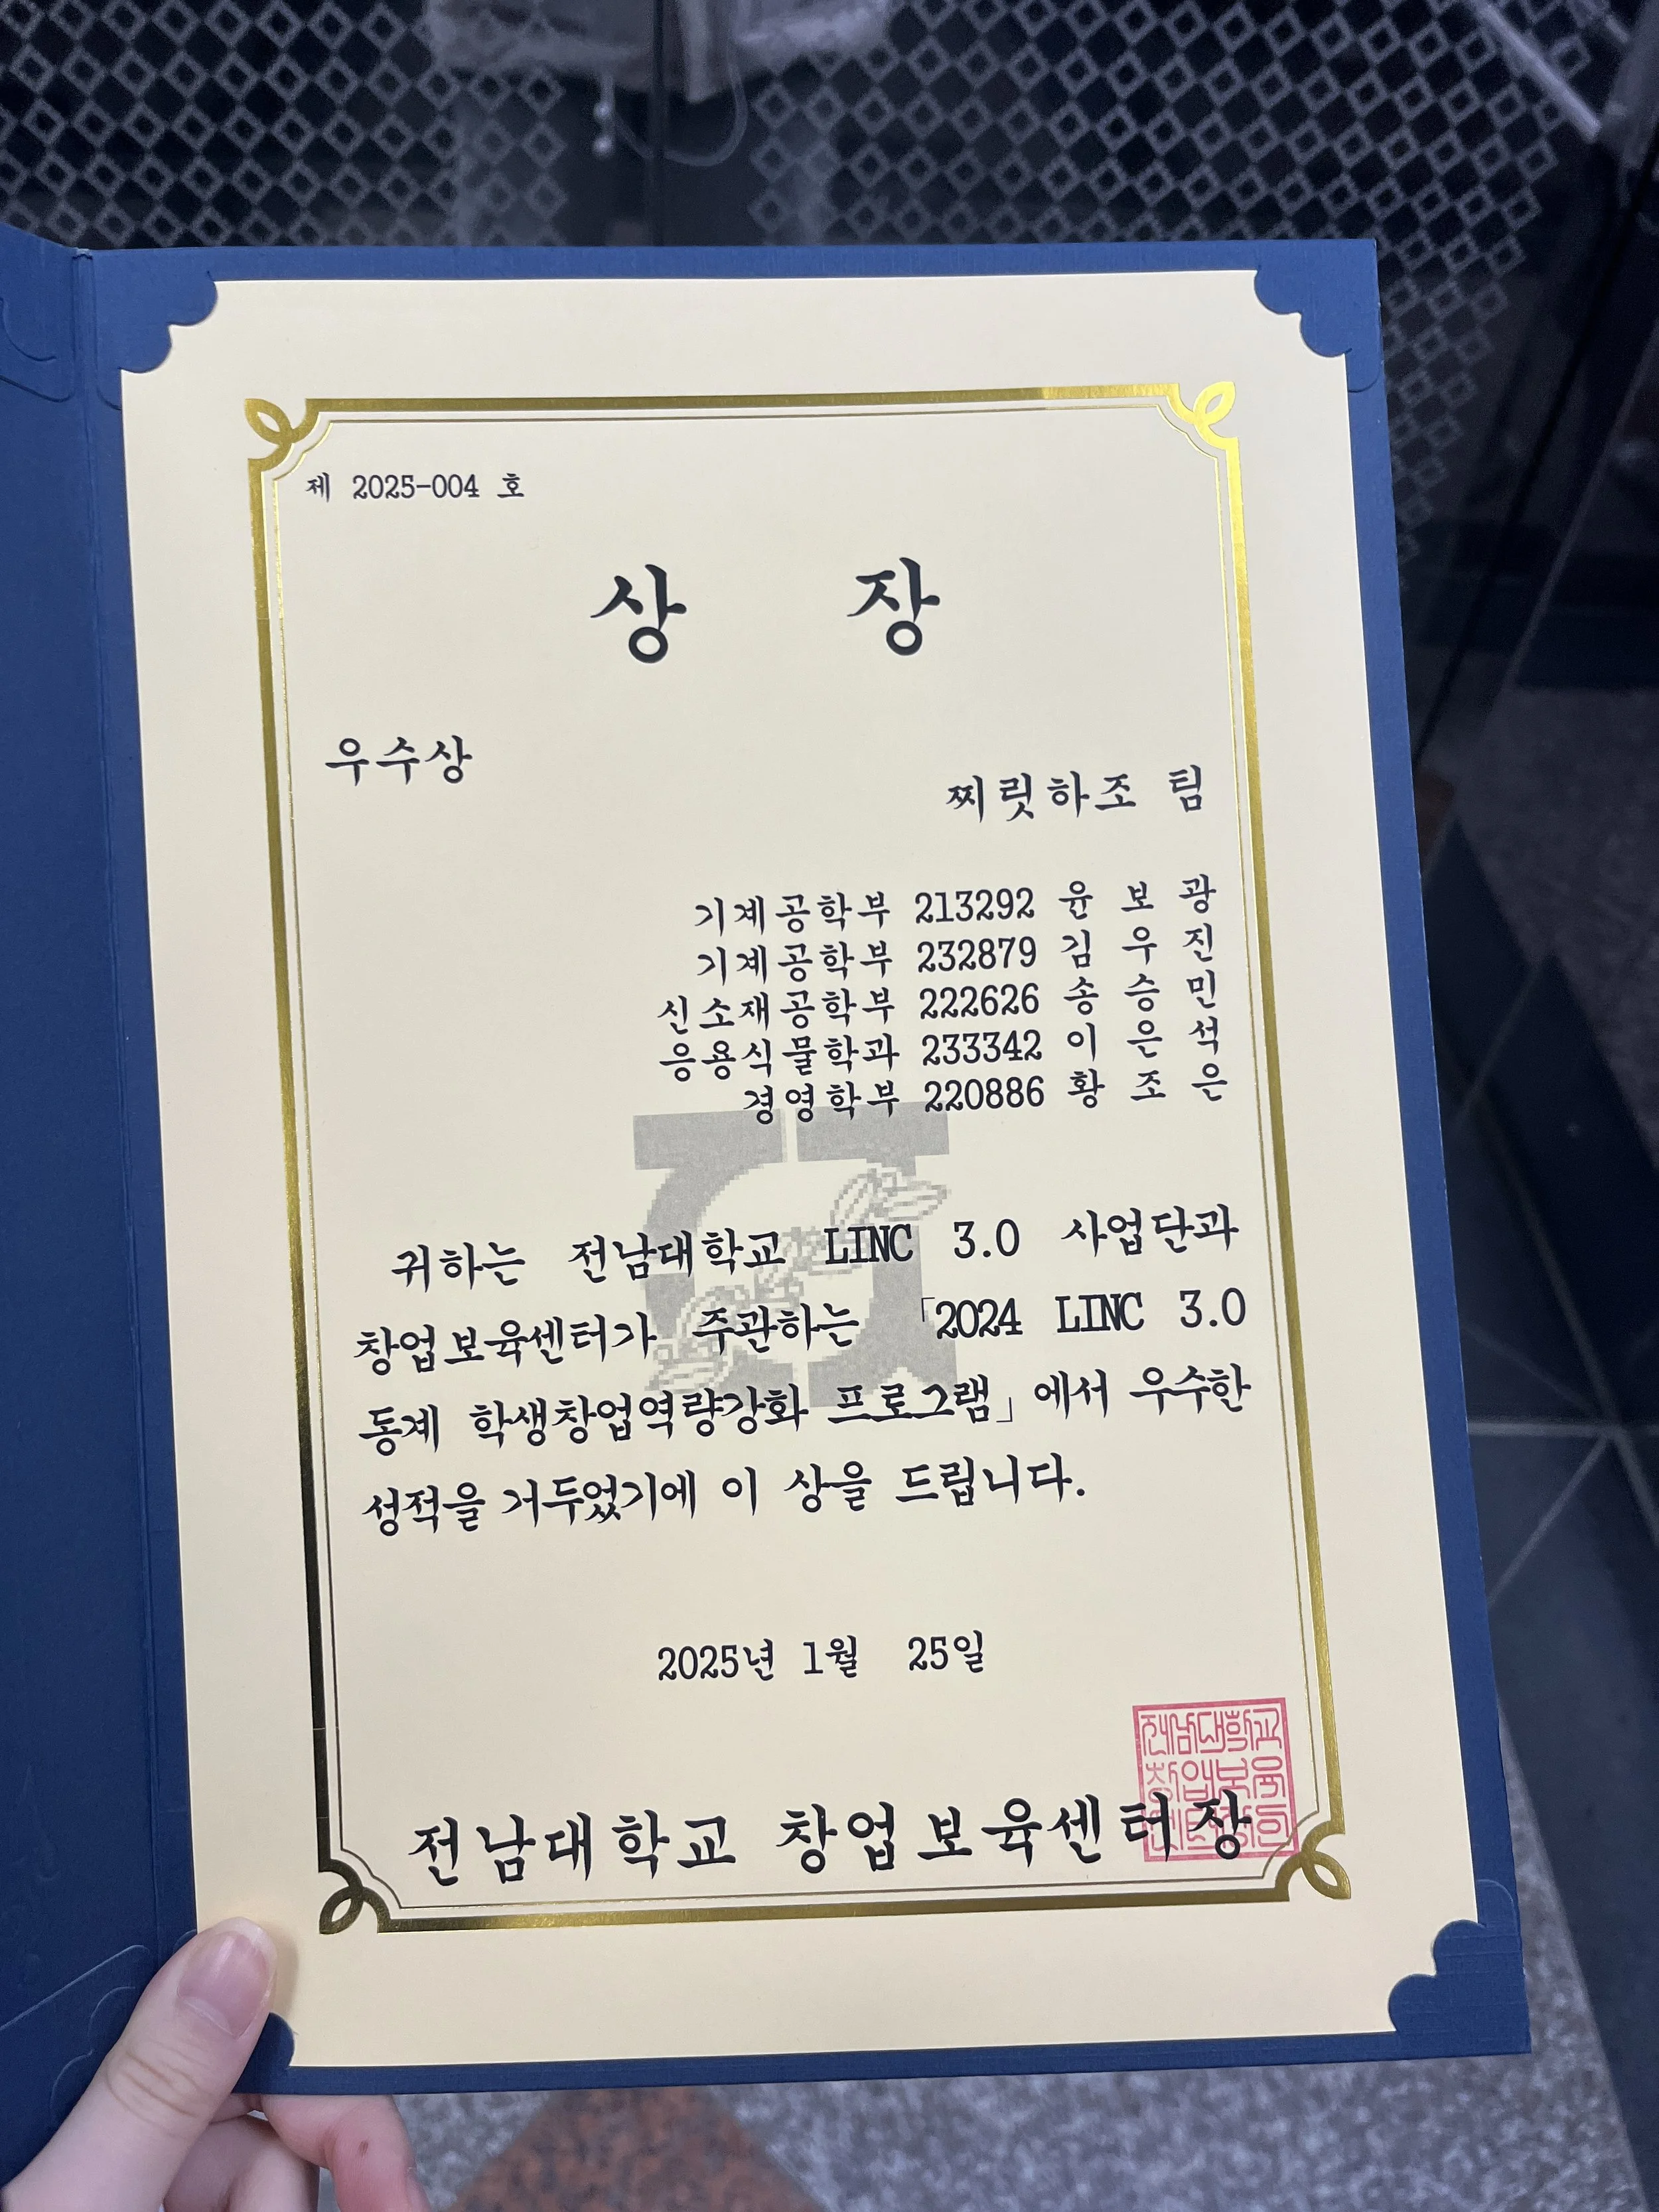 제 2025-004 호
상 장
우수상
찌릿하조 팀
기계공학부 213292 윤 보 광
기계공학부 232879 김 우 진
신소재공학부 222626 송 승 민
응용식물학과 233342 이 은 석
경영학부 220886 황 조 은
귀하는 전남대학교 LINC 3.0 사업단과
창업보육센터가 주관하는 「2024 LINC 3.0
동계 학생창업역량강화 프로그램」에서 우수한
성적을 거두었기에 이 상을 드립니다.
2025년 1월 25일
전남대학교
창업보육
센터장인
전남대학교 창업보육센터장